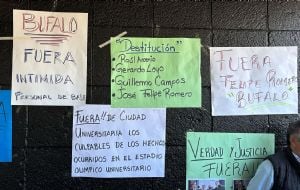 BUFALO
FUERA
INTIMIDA
PERSONAL DE BASE
"Destitución"
• Raúl
• Gerardo Loyo
• Guillermo Campos
• José Felipe Romero
FUERA
FELIPE ROMERO
"BUFALO"
FUERA!! DE CIUDAD
UNIVERSITARIA LOS
CULPABLES DE LOS HECHOS
OCURRIDOS EN EL ESTADIO
OLIMPICO UNIVERSITARIO
VERDAD Y JUSTICIA
FUERA